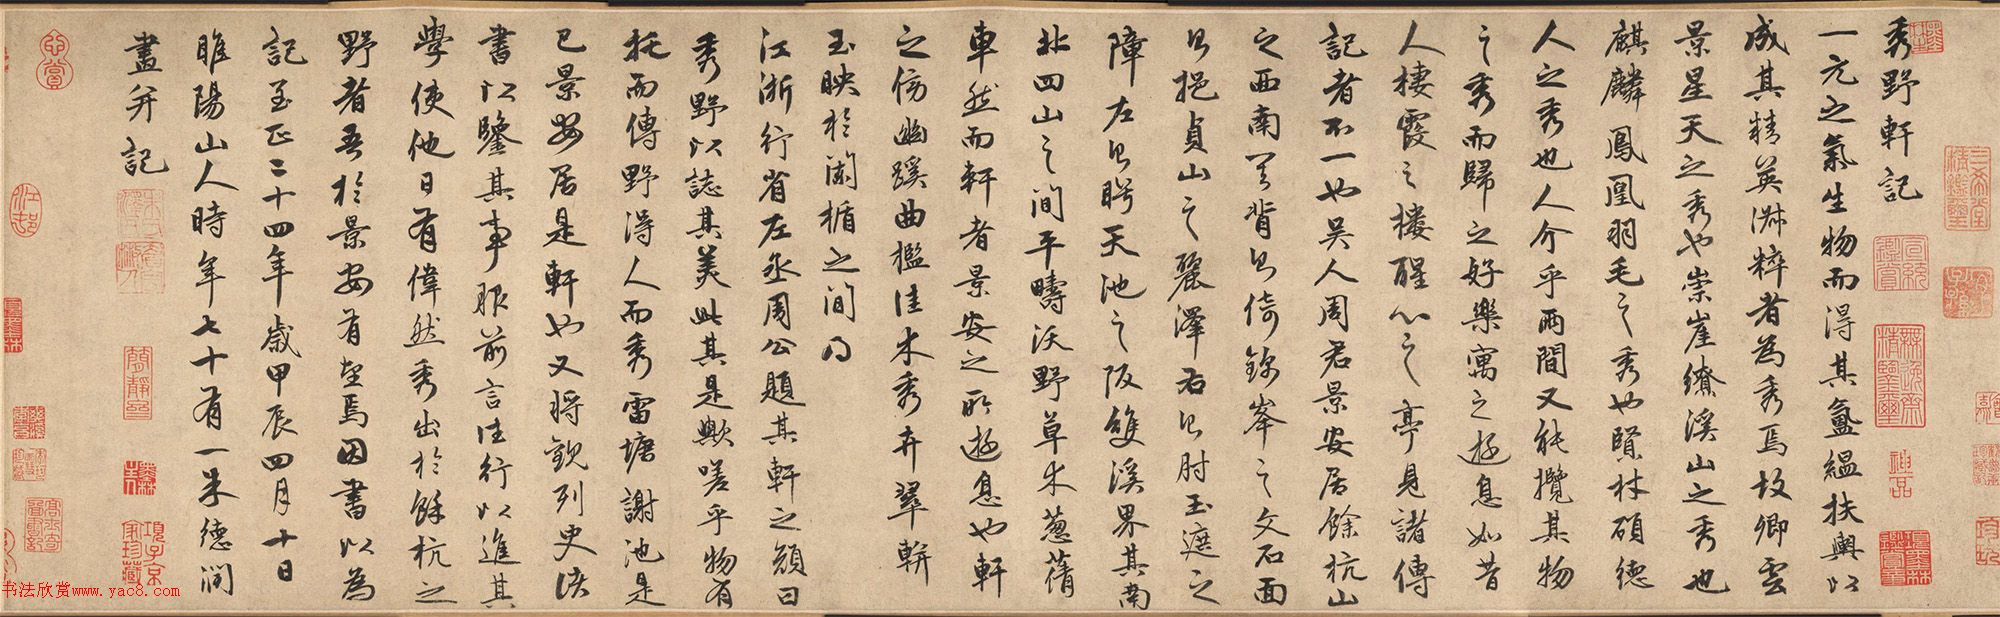 秀野軒記
一元之氣生物而得其氤氳扶輿以
成其精英淋粹者為秀焉故卿雲
景星天之秀也崇崖繚溪山之秀也
麒麟鳳凰羽毛之秀也賢材碩德
人之秀也人介乎兩間又能攬其物
之秀而歸之好樂寓之遊息如昔
人棲霞之樓醒心之亭見諸傳
記者不一也吳人周君景安居餘杭山
之西南其背則倚錦峯之文石面
則挹貞山之麗澤右則肘玉遮之
障左則盻天池之阪雙溪界其南
北四山之間平疇沃野草木蔥蒨
車然而軒者景安之所遊息也軒
之傍幽蹊曲檻佳木秀卉翠軿
玉映於闌楯之間得
江浙行省左丞周公題其軒之顏曰
秀野以誌其美此其是歟嗟乎物有
托而傳野得人而秀雷塘謝池是
已景安居是軒也又將觀列史諸
書以鑒其事服前言往行以進其
學使他日有偉然秀出於餘杭之
野者吾於景安有望焉因書以為
記至正二十四年歲甲辰四月十日
睢陽山人時年七十有一朱德潤
畫并記
項子京
家珍藏
書法欣赏www.yac8.com